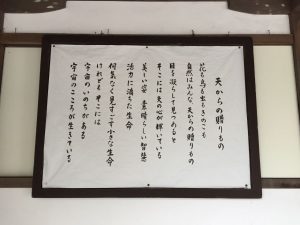 天からの贈りもの
花も鳥も虫もきのこも
自然はみんな、天からの贈りもの
目を凝らして見つめると
そこには天の心が輝いている
美しい姿 素晴らしい智慧
活力に満ちた生命
何気なく見すごす小さな生命
けれどもそこには
宇宙のいのちがある
宇宙のこころが生きている